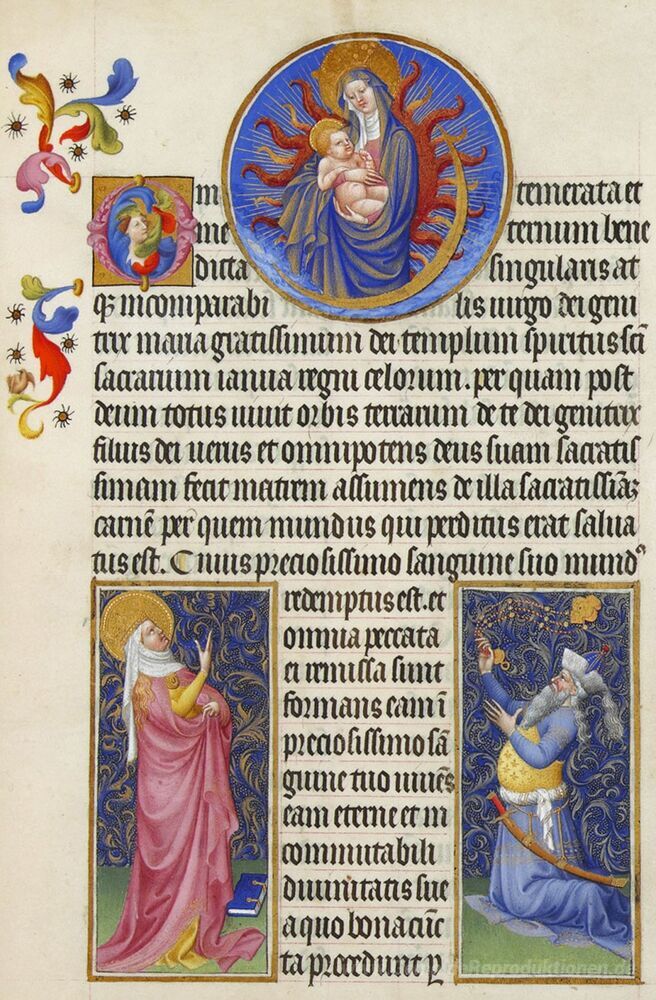 O
m temerata et
me ternum bene
dicta singularis at
qꝫ incomparabi lis uirgo dei geni
trix maria gratissimum dei templum spiritus sc̄i
sacrarium ianua regni celorum. per quam post
deum totus uiuit orbis terrarum de te dei genitrix
filius dei uerus et omnipotens deus suam sacratis
simam fecit meitrem assumens de illa sacratissiāꝫ
carnē per quem mundus qui perditus erat salua
tus est. Cuius preciosissimo sanguine suo mundꝰ
redemptus est. et
omnia peccata
ei remissa sunt
formans eam ī
preciosissimo sā
guine tuo uiuēs
eam eterne et in
commutabili
diuinitatis sue
a quo bona cūc
ta procedunt ꝑ
Reproduktionen.de